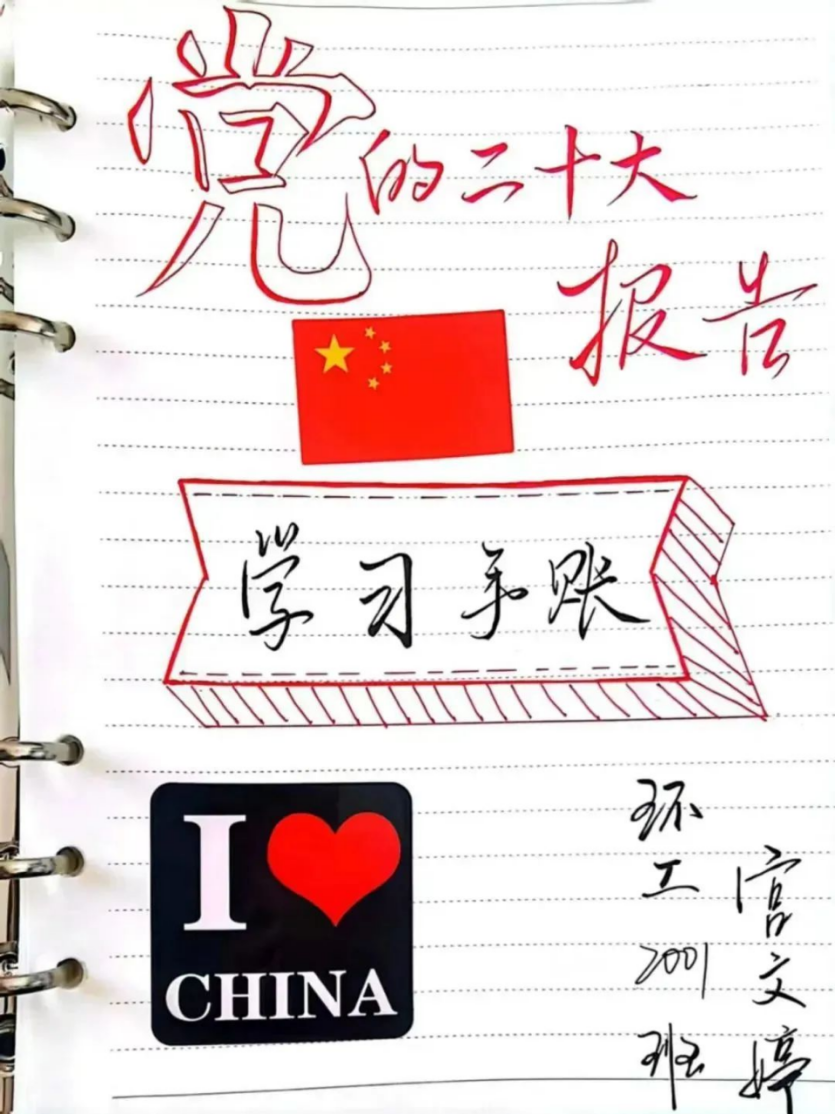 党的二十大
报告
学习手账
I ❤
CHINA
环工2001班
宫文婷